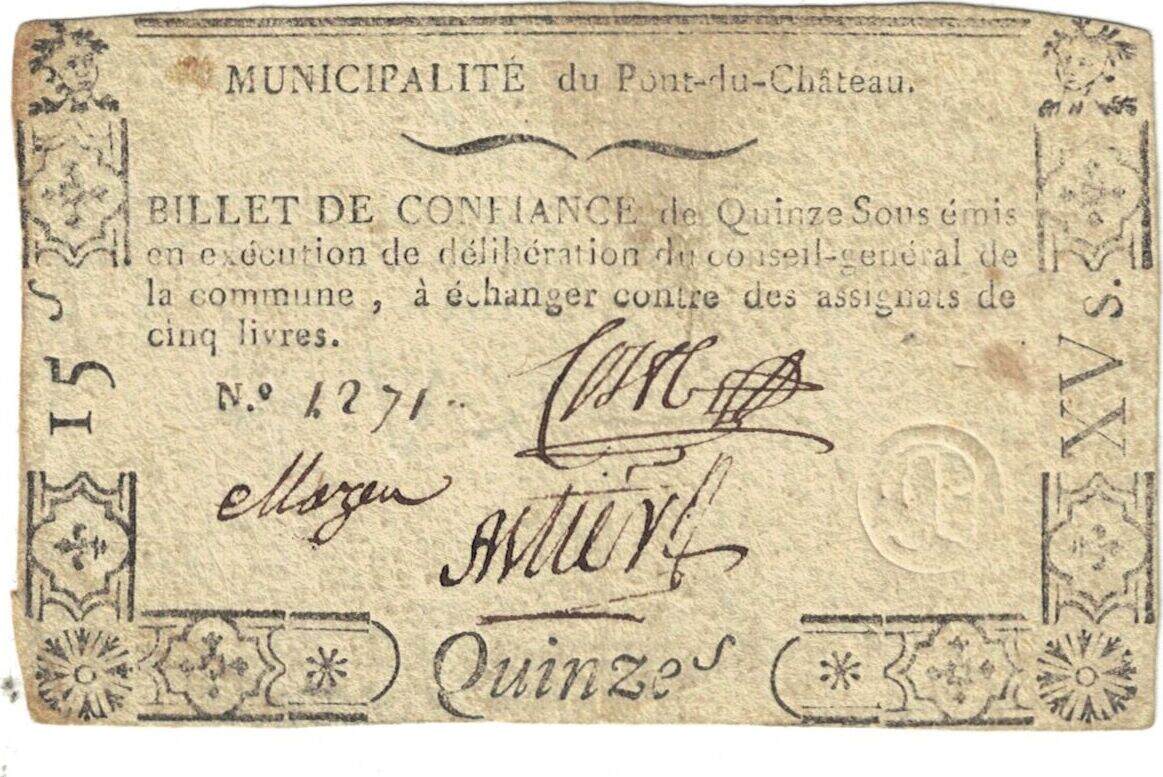 MUNICIPALITÉ du Pont-du-Château.
BILLET DE CONFIANCE de Quinze Sous émis
en exécution de délibération du conseil-général de
la commune, à échanger contre des assignats de
cinq livres.
N.º 1271
Mazen
Astier
15 s
XV s.
Quinze s